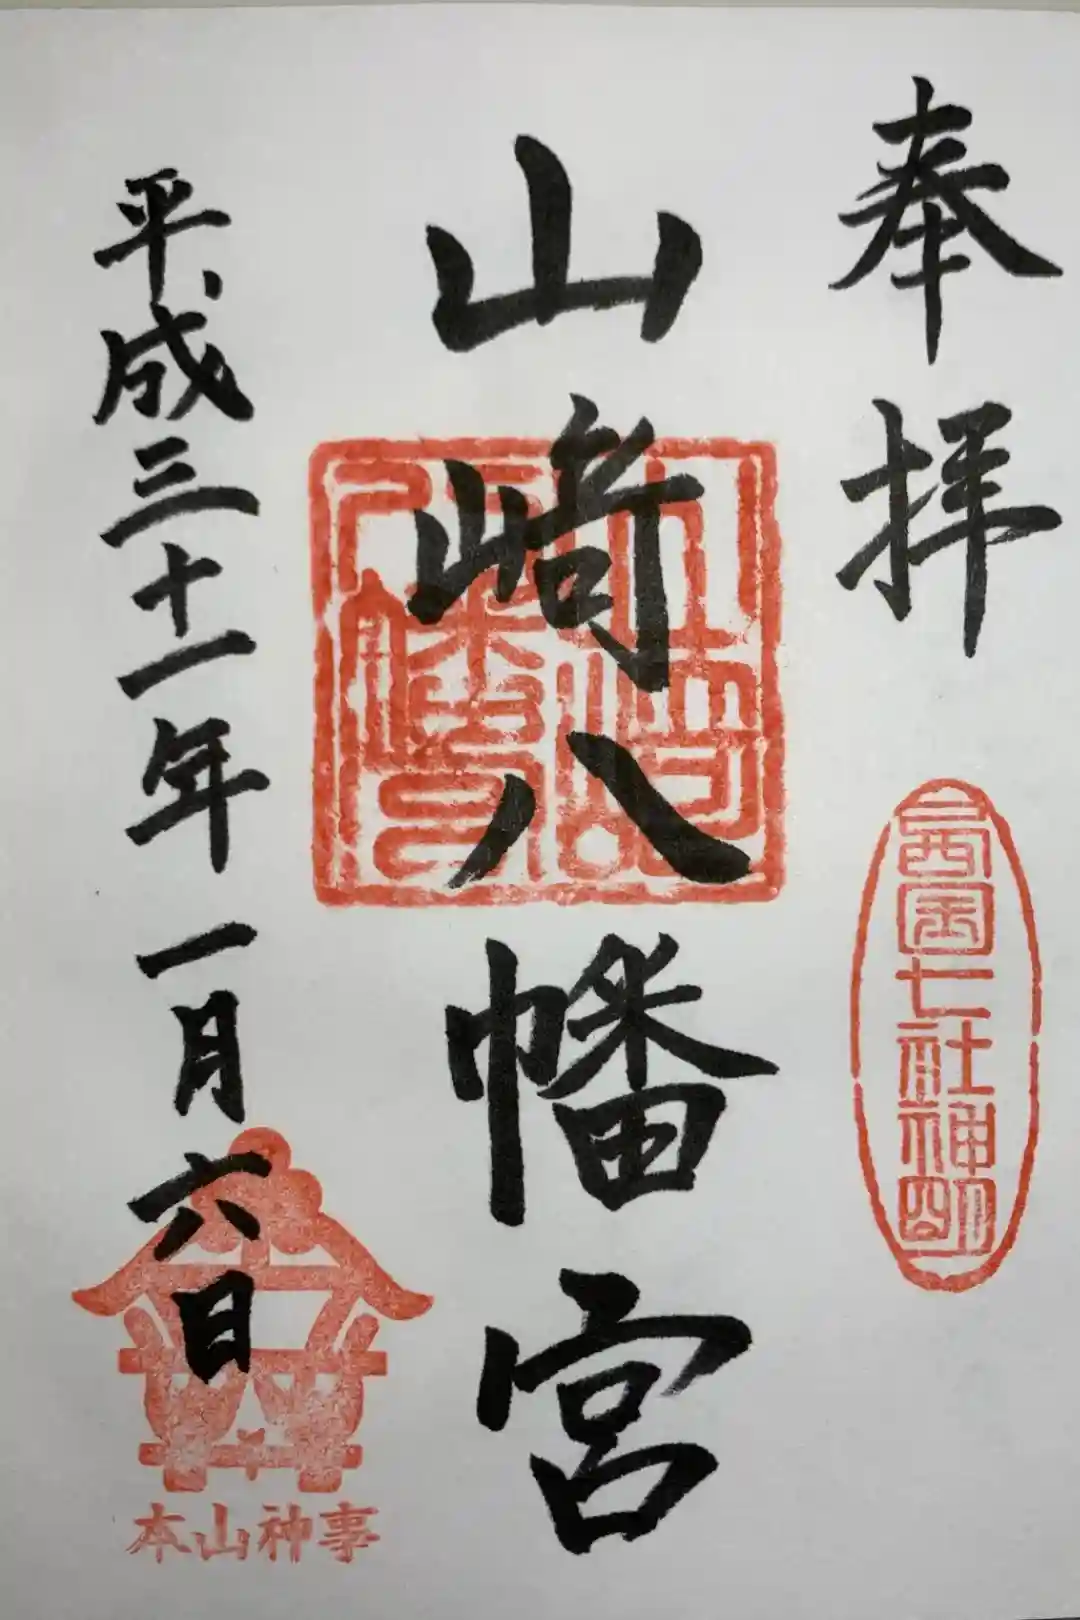 奉拝
西国七社神明
山崎八幡宮
山崎八幡宮
平成三十一年一月六日
本山神事